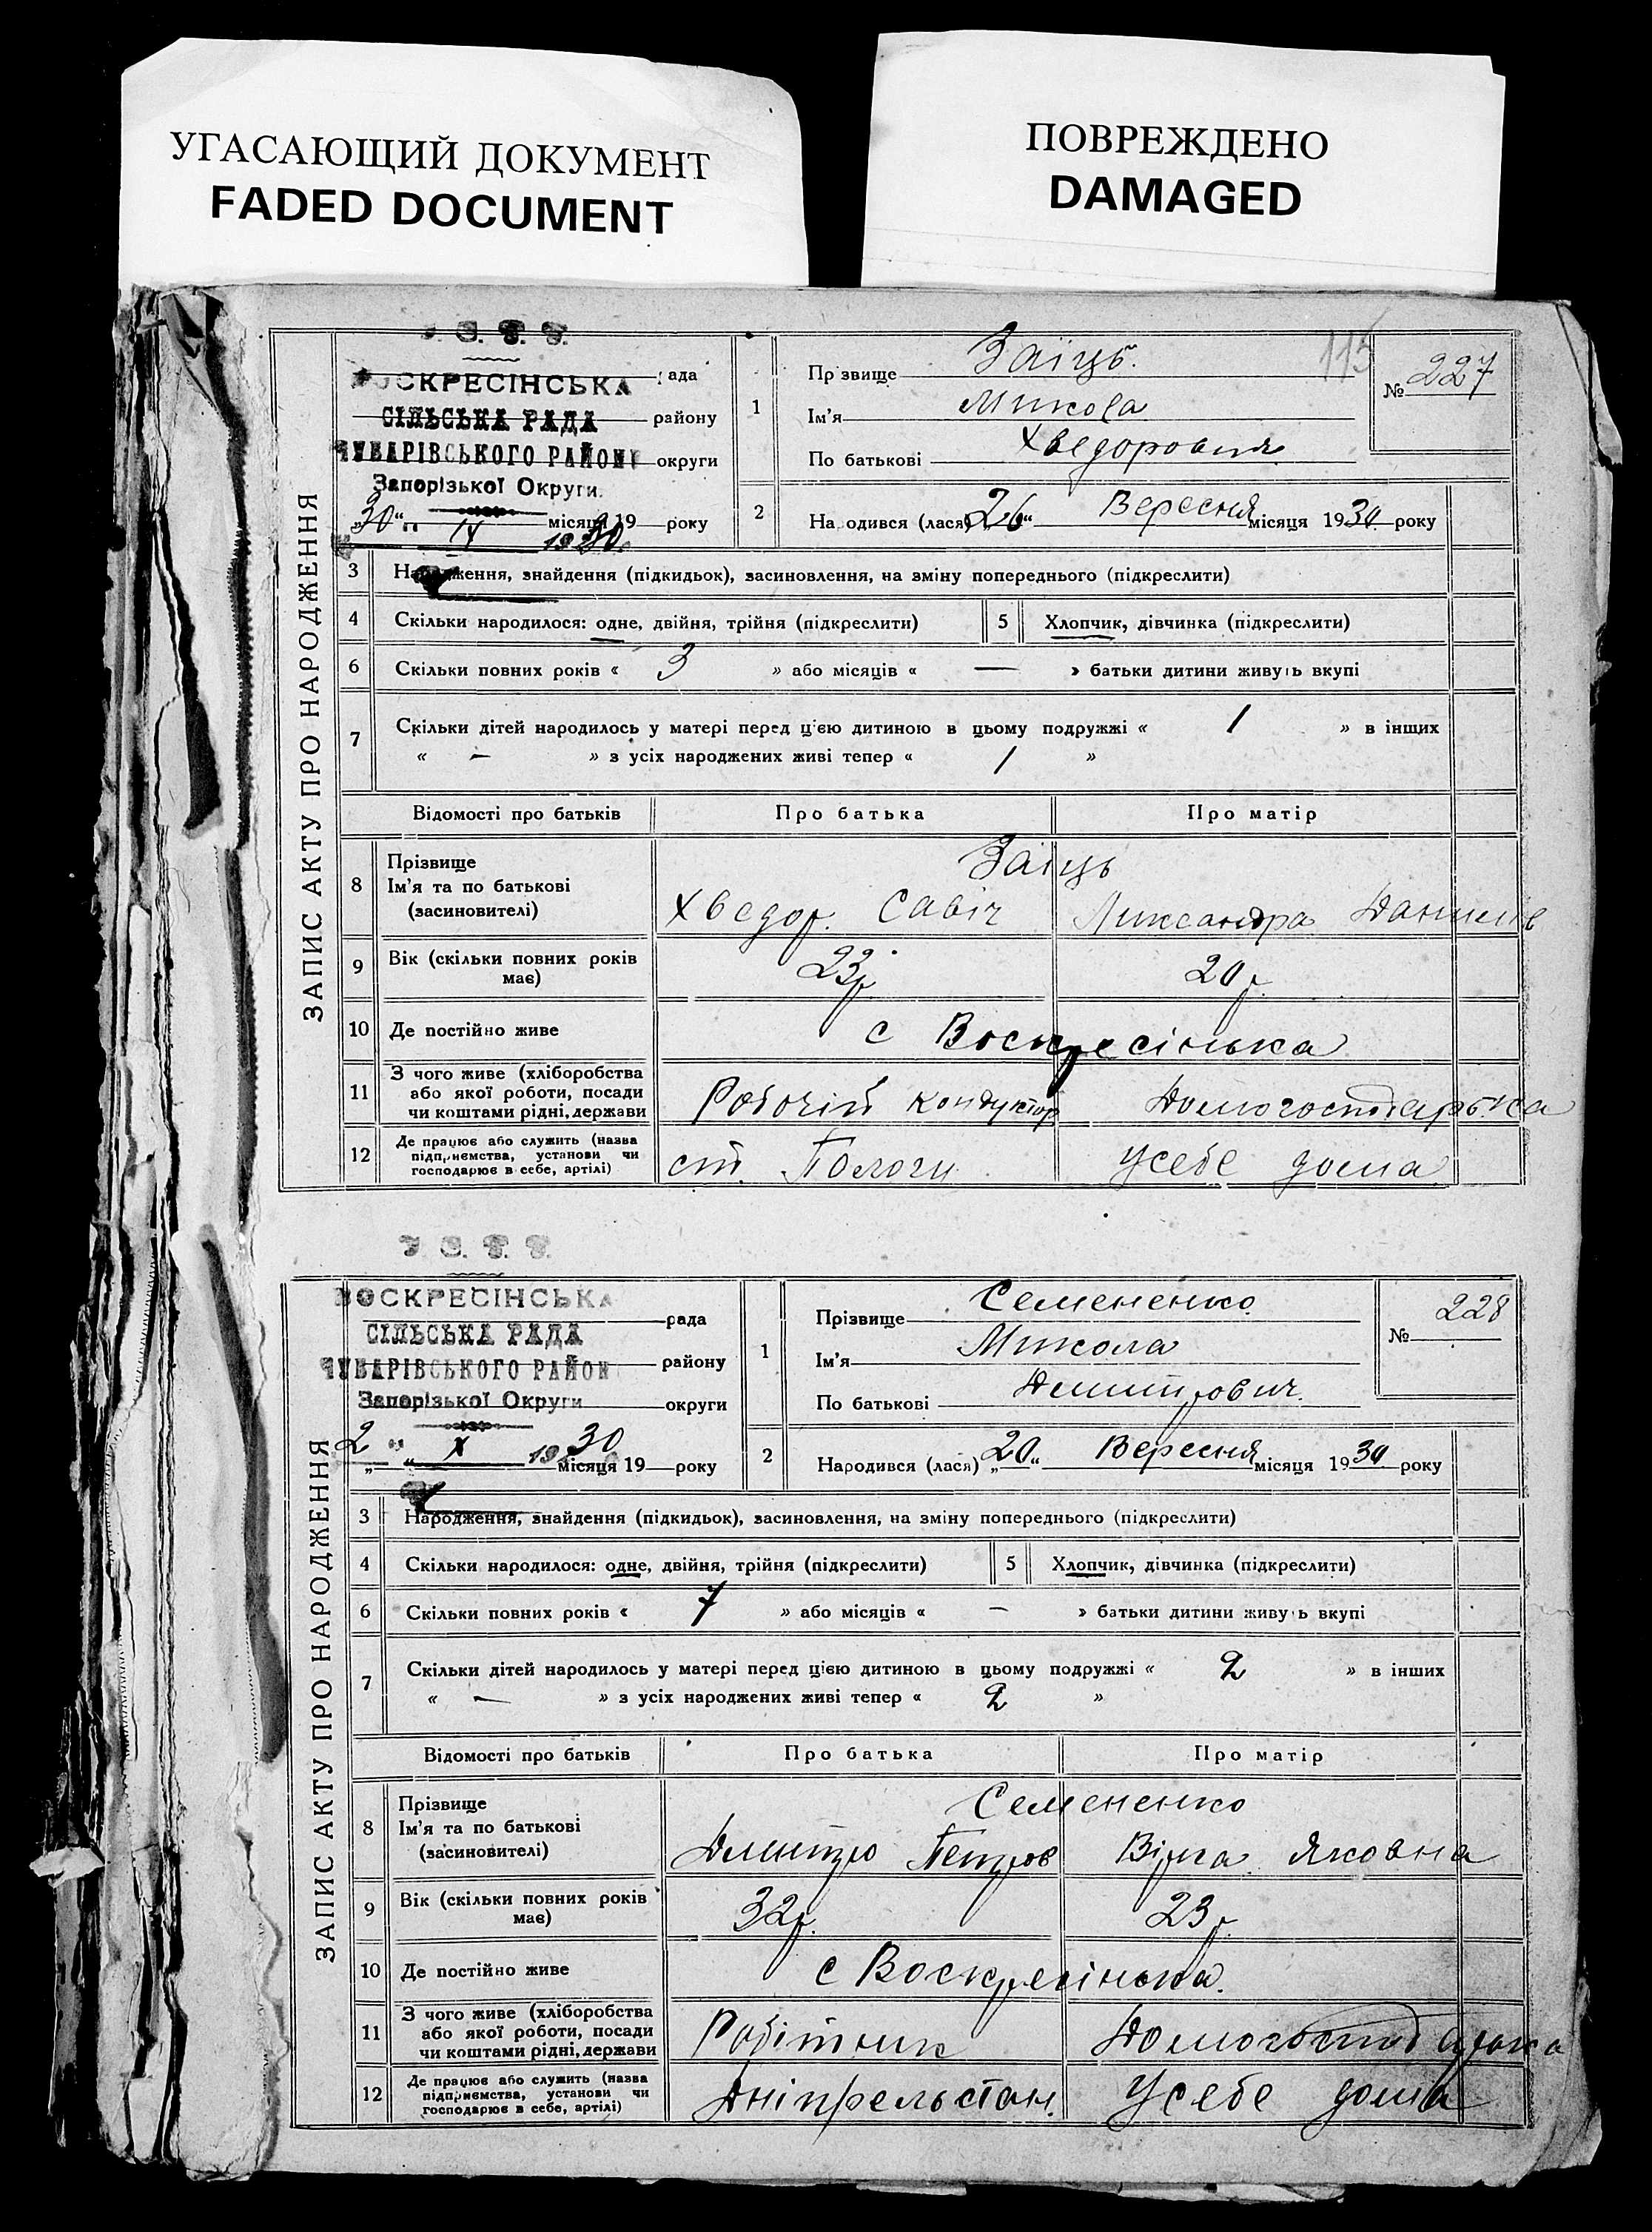 УГАСАЮЩИЙ ДОКУМЕНТ
FADED DOCUMENT
ПОВРЕЖДЕНО
DAMAGED
115
ЗАПИС АКТУ ПРО НАРОДЖЕННЯ
У. С. Р. Р.
ВОСКРЕСІНСЬКА рада
СІЛЬСЬКА РАДА району
ЧУБАРІВСЬКОГО РАЙОНУ округи
Запорізької Округи.
„30“ IX місяця 19 року
1930
1 Прізвище Заїць.
Ім'я Микола
По батькові Хведорович
№ 227
2 Народився (лася) „26“ Вересня місяця 1930 року
3 Народження, знайдення (підкидьок), засиновлення, на зміну попереднього (підкреслити)
4 Скільки народилося: одне, двійня, трійня (підкреслити) 5 Хлопчик, дівчинка (підкреслити)
6 Скільки повних років « 3 » або місяців « — » батьки дитини живуть вкупі
7 Скільки дітей народилось у матері перед цією дитиною в цьому подружжі « 1 » в інших
« — » з усіх народжених живі тепер « 1 »
Відомості про батьків Про батька Про матір
8 Прізвище Заіць
Ім'я та по батькові
(засиновителі) Хведор. Савіч Ликсандра
9 Вік (скільки повних років має) 23р 20р.
10 Де постійно живе с Воскресінька
11 З чого живе (хліборобства
або якої роботи, посади
чи коштами рідні, держави Робочій кондуктор Домогосподарька
12 Де працює або служить (назва
підприємства, установи чи
господарює в себе, артілі) ст. Пологи Усебе дома
ЗАПИС АКТУ ПРО НАРОДЖЕННЯ
У. С. Р. Р.
ВОСКРЕСІНСЬКА рада
СІЛЬСЬКА РАДА
ЧУБАРІВСЬКОГО РАЙОН району
Запорізької Округи округи
2 “ X 1930
„ “ місяця 19 року
1 Прізвище Семененко.
Ім'я Микола
По батькові Дмитрович.
№ 228
2 Народився (лася) „20“ Вересня місяця 1930 року
3 Народження, знайдення (підкидьок), засиновлення, на зміну попереднього (підкреслити)
4 Скільки народилося: одне, двійня, трійня (підкреслити) 5 Хлопчик, дівчинка (підкреслити)
6 Скільки повних років « 7 » або місяців « — » батьки дитини живуть вкупі
7 Скільки дітей народилось у матері перед цією дитиною в цьому подружжі « 2 » в інших
« — » з усіх народжених живі тепер « 2 »
Відомості про батьків Про батька Про матір
8 Прізвище Семененко
Ім'я та по батькові
(засиновителі) Дмитро Петров Вірка Яковна
9 Вік (скільки повних років має) 32р. 23р
10 Де постійно живе с Воскресінька.
11 З чого живе (хліборобства
або якої роботи, посади
чи коштами рідні, держави Робітник Домогосподарька
12 Де працює або служить (назва
підприємства, установи чи
господарює в себе, артілі) Дніпрельстан. Усебе дома